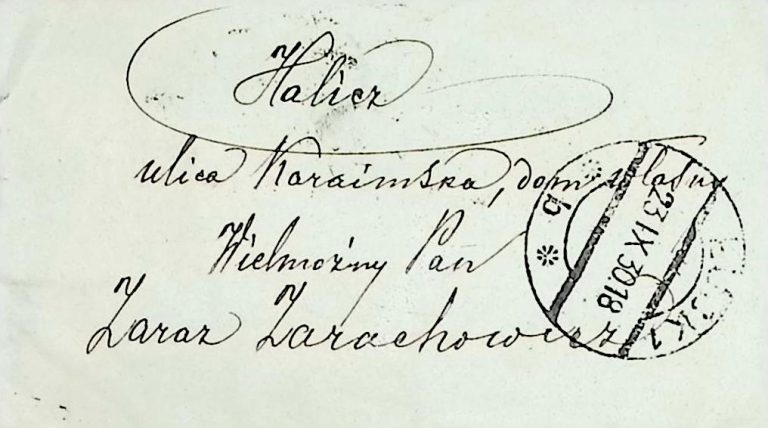 Halicz
ulica Karaimska, dom własny
Wielmożny Pan
Zaraz Zarachowicz
23 IX 30.18
b